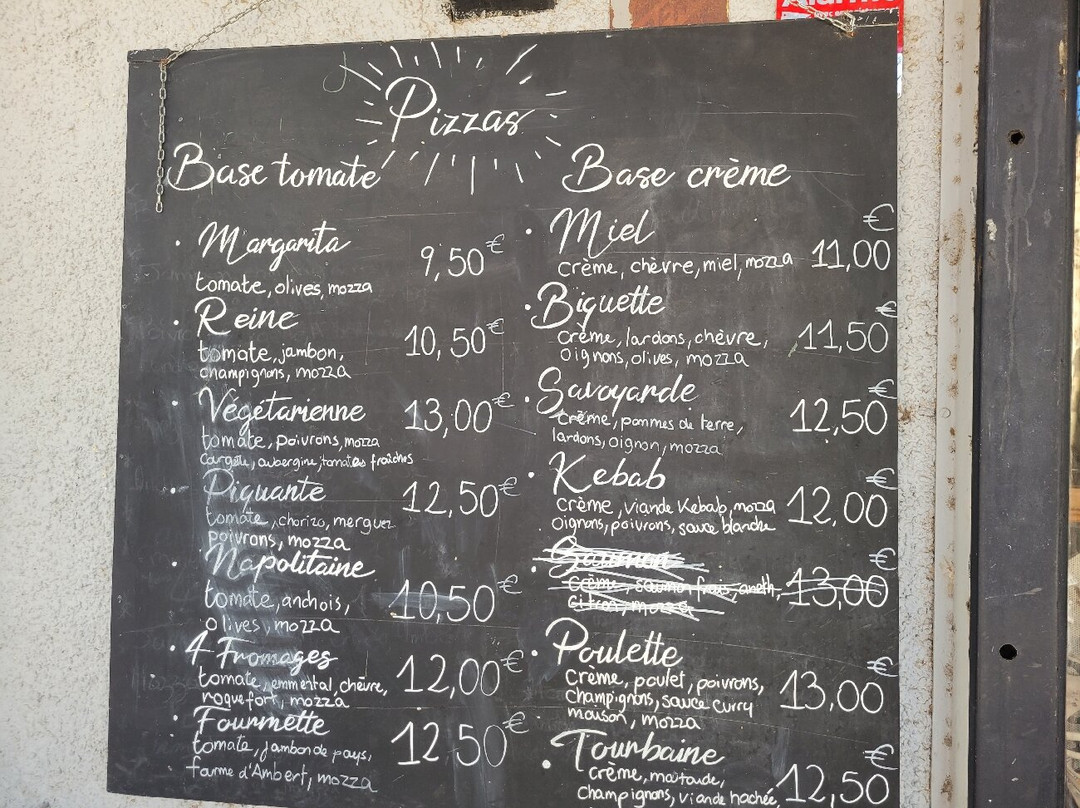 Pizzas
Base tomate
• Margarita 9,50€
tomate, olives, mozza
• Reine 10,50€
tomate, jambon,
champignons, mozza
• Végétarienne 13,00€
tomate, poivrons, mozza
Courgette, aubergine, tomates fraîches
• Piquante 12,50€
tomate, chorizo, merguez
poivrons, mozza
• Napolitaine 10,50€
tomate, anchois,
olives, mozza
• 4 Fromages 12,00€
tomate, emmental, chèvre,
roquefort, mozza
• Fourmette 12,50€
tomate, jambon de pays,
farme d'Ambert, mozza
Base crème
• Miel 11,00€
crème, chèvre, miel, mozza
• Biquette 11,50€
crème, lardons, chèvre,
oignons, olives, mozza
• Savoyarde 12,50€
Crème, pommes de terre,
lardons, oignon, mozza
• Kebab 12,00€
Crème, viande Kebab, mozza
Oignons, poivrons, sauce blanche
• Saumon 13,00€
Crème, saumon frais, aneth,
citron, mozza
• Poulette 13,00€
Crème, poulet, poivrons,
champignons, sauce curry
maison, mozza
• Tourbaine 12,50€
crème, moutarde,
champignons, viande hachée,